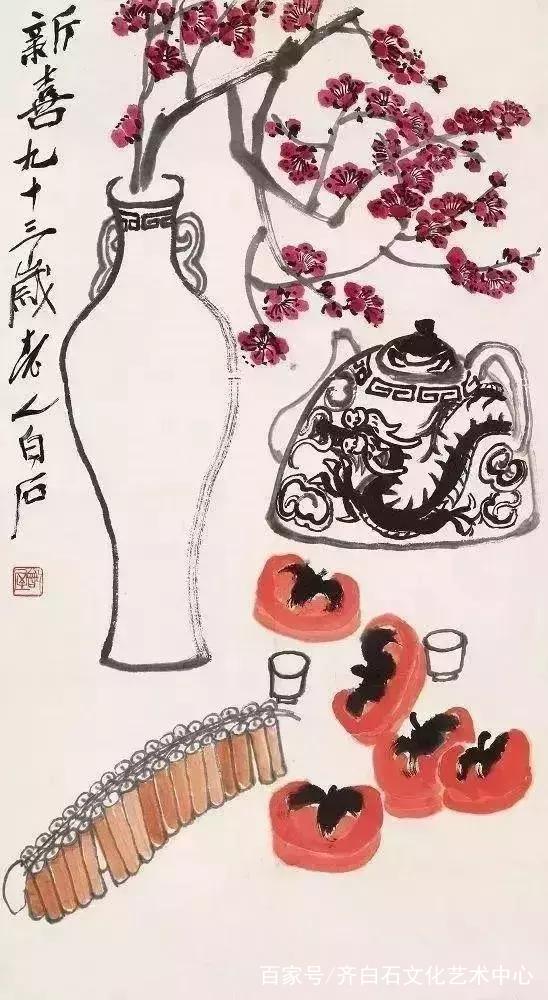 新喜九十三歲老人白石
百家号/齐白石文化艺术中心